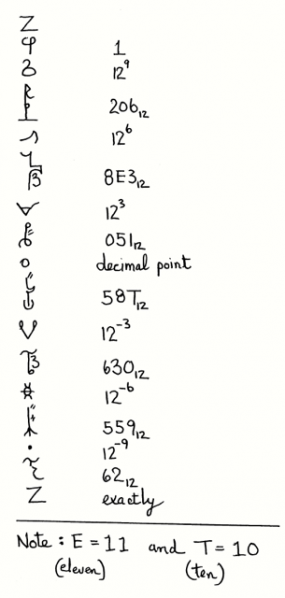 1
12⁹
206₁₂
12⁶
8E3₁₂
12³
051₁₂
decimal point
58T₁₂
12⁻³
630₁₂
12⁻⁶
559₁₂
12⁻⁹
62₁₂
Z exactly
Note : E = 11 and T = 10
(eleven) (ten)